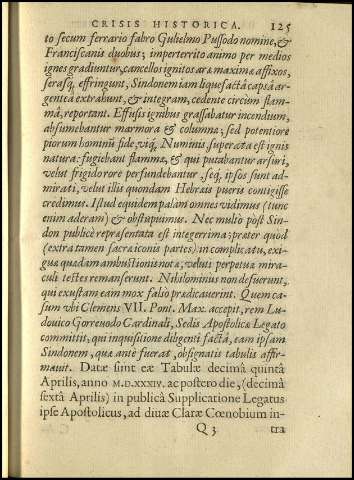 CRISIS HISTORICA. 125
to secum ferrario fabro Gulielmo Pussodo nomine, &
Franciscanis duobus; imperterrito animo per medios
ignes gradiuntur, cancellos ignitos aræ maximæ affixos,
serasq́; effringunt, Sindonem iam liquefactâ capsâ ar-
genteâ extrahunt, & integram, cedente circùm flam-
mâ, reportant. Effusis ignibus grassabatur incendium,
absumebantur marmora & columnæ; sed potentiore
piorum hominũ fide, viq́; Numinis, superata est ignis
natura: fugiebant flammæ, & qui putabantur arsuri,
velut frigido rore perfundebantur, seq́; ipsos sunt ad-
mirati, velut illis quondam Hebræis pueris contigisse
credimus. Istud equidem palam omnes vidimus (tunc
enim aderam) & obstupuimus. Nec multo pòst Sin-
don publicè repræsentata est integerrima; præter quòd
(extra tamen sacræ iconis partes) in complicatu, exi-
guæ quædam ambustionis notæ, veluti perpetuæ mira-
culi testes remanserunt. Nihilominùs non defuerunt,
qui exustam eam mox falsò prædicauerint. Quem ca-
sum vbi Clemens VII. Pont. Max. accepit, rem Lu-
douico Gorreuodo Cardinali, Sedis Apostolicæ Legato
committit, qui inquisitione diligenti factâ, eam ipsam
Sindonem, quæ antè fuerat, obsignatis tabulis affir-
mauit. Datæ sint eæ Tabulæ decimâ quintâ
Aprilis, anno M.D.XXXIV. ac postero die, (decimâ
sextâ Aprilis) in publicâ Supplicatione Legatus
ipse Apostolicus, ad diuæ Claræ Cœnobium in-
Q 3 tra